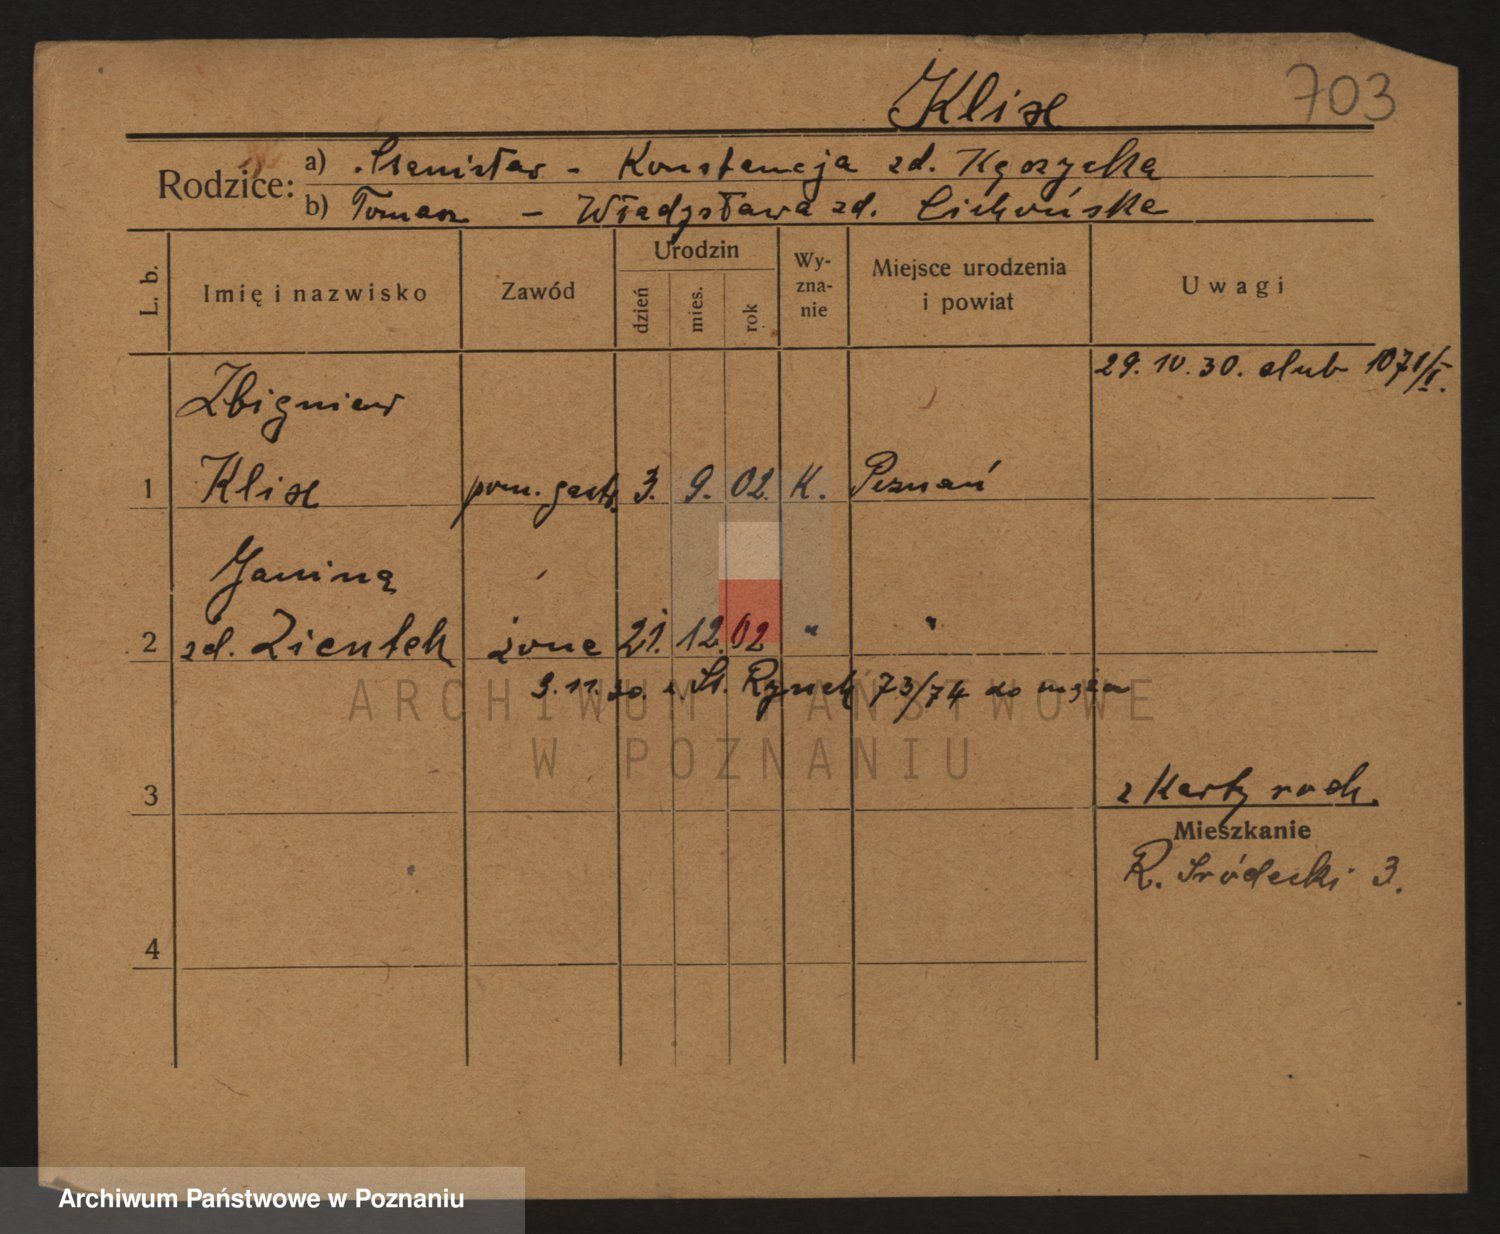 Klix 703
Rodzice: a) Stanisław - Konstancja zd. Kęszycka
b) Tomasz - Władysława zd. Cichońska
L. b. Imię i nazwisko Zawód Urodzin dzień mies. rok Wy-zna-nie Miejsce urodzenia i powiat Uwagi
29. 10. 30. ślub 1071/II.
Zbigniew
1 Klix pom. gastr. 3. 9. 02. K. Poznań
Janina
2 zd. Zientek żona 21. 12. 02 " "
9.11.30. z St. Rynek 73/74 do męża
ARCHIWUM PAŃSTWOWE
W POZNANIU
3 z Karty rodz.
Mieszkanie
R. Śródecki 3.
4
Archiwum Państwowe w Poznaniu